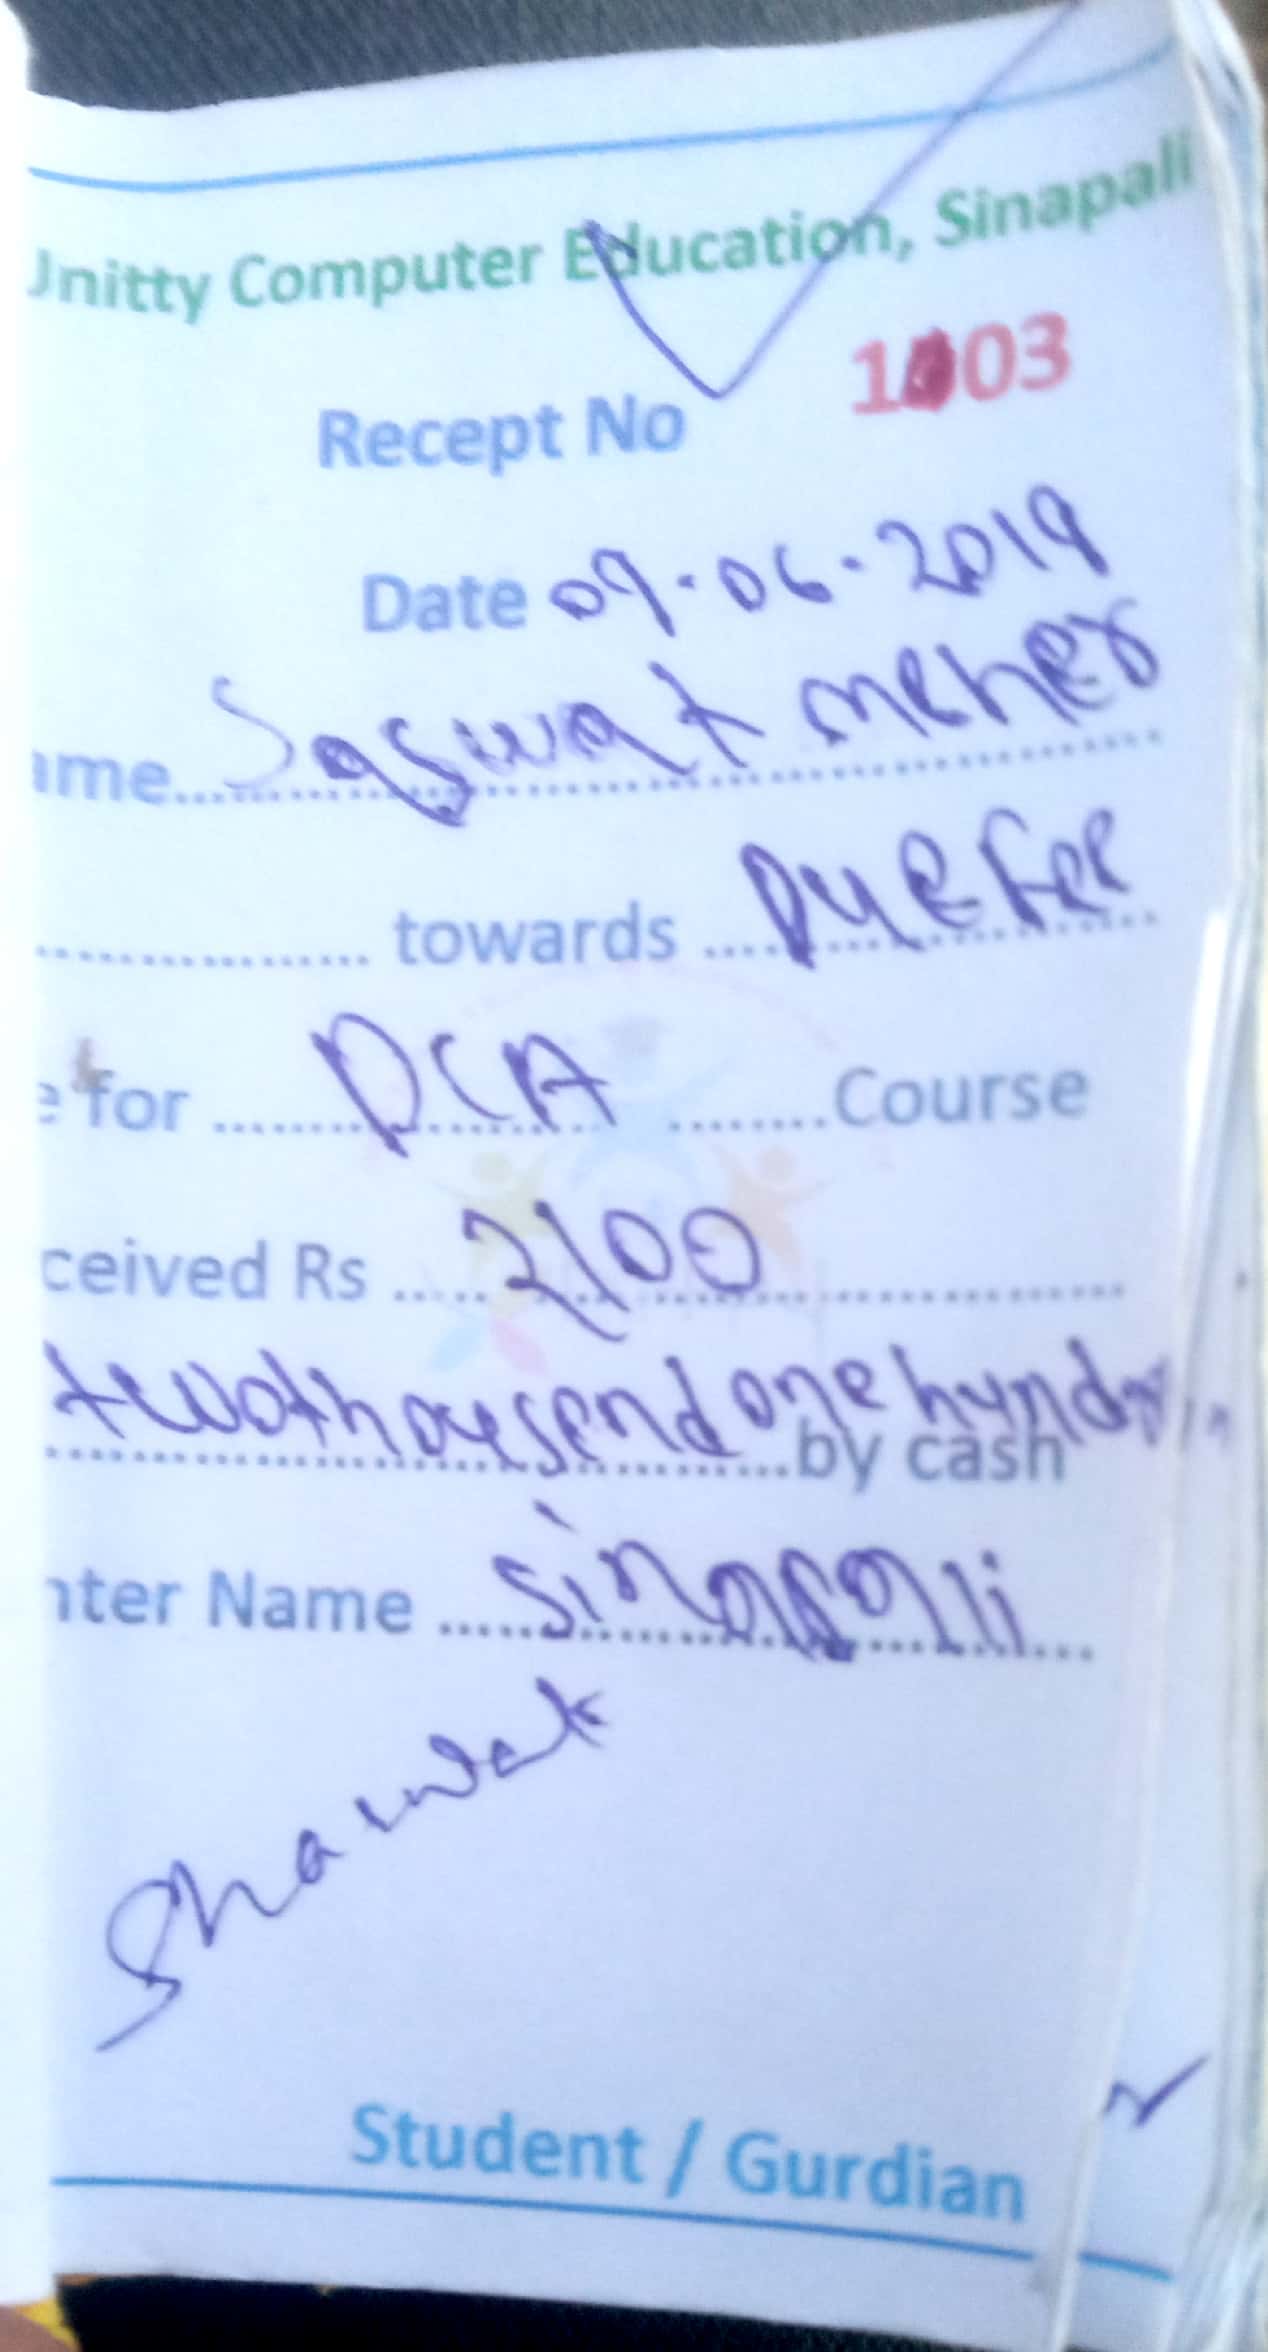 Unitty Computer Education, Sinapali
Recept No 1003
Date 09.06.2019
ame.... Saswat meher
.... towards .... Due Fee
e for .... DCA .... Course
ceived Rs .... 2100 ....
twothousend one hundr
....by cash
nter Name .... Sinapalli
Shaswat
Student / Gurdian